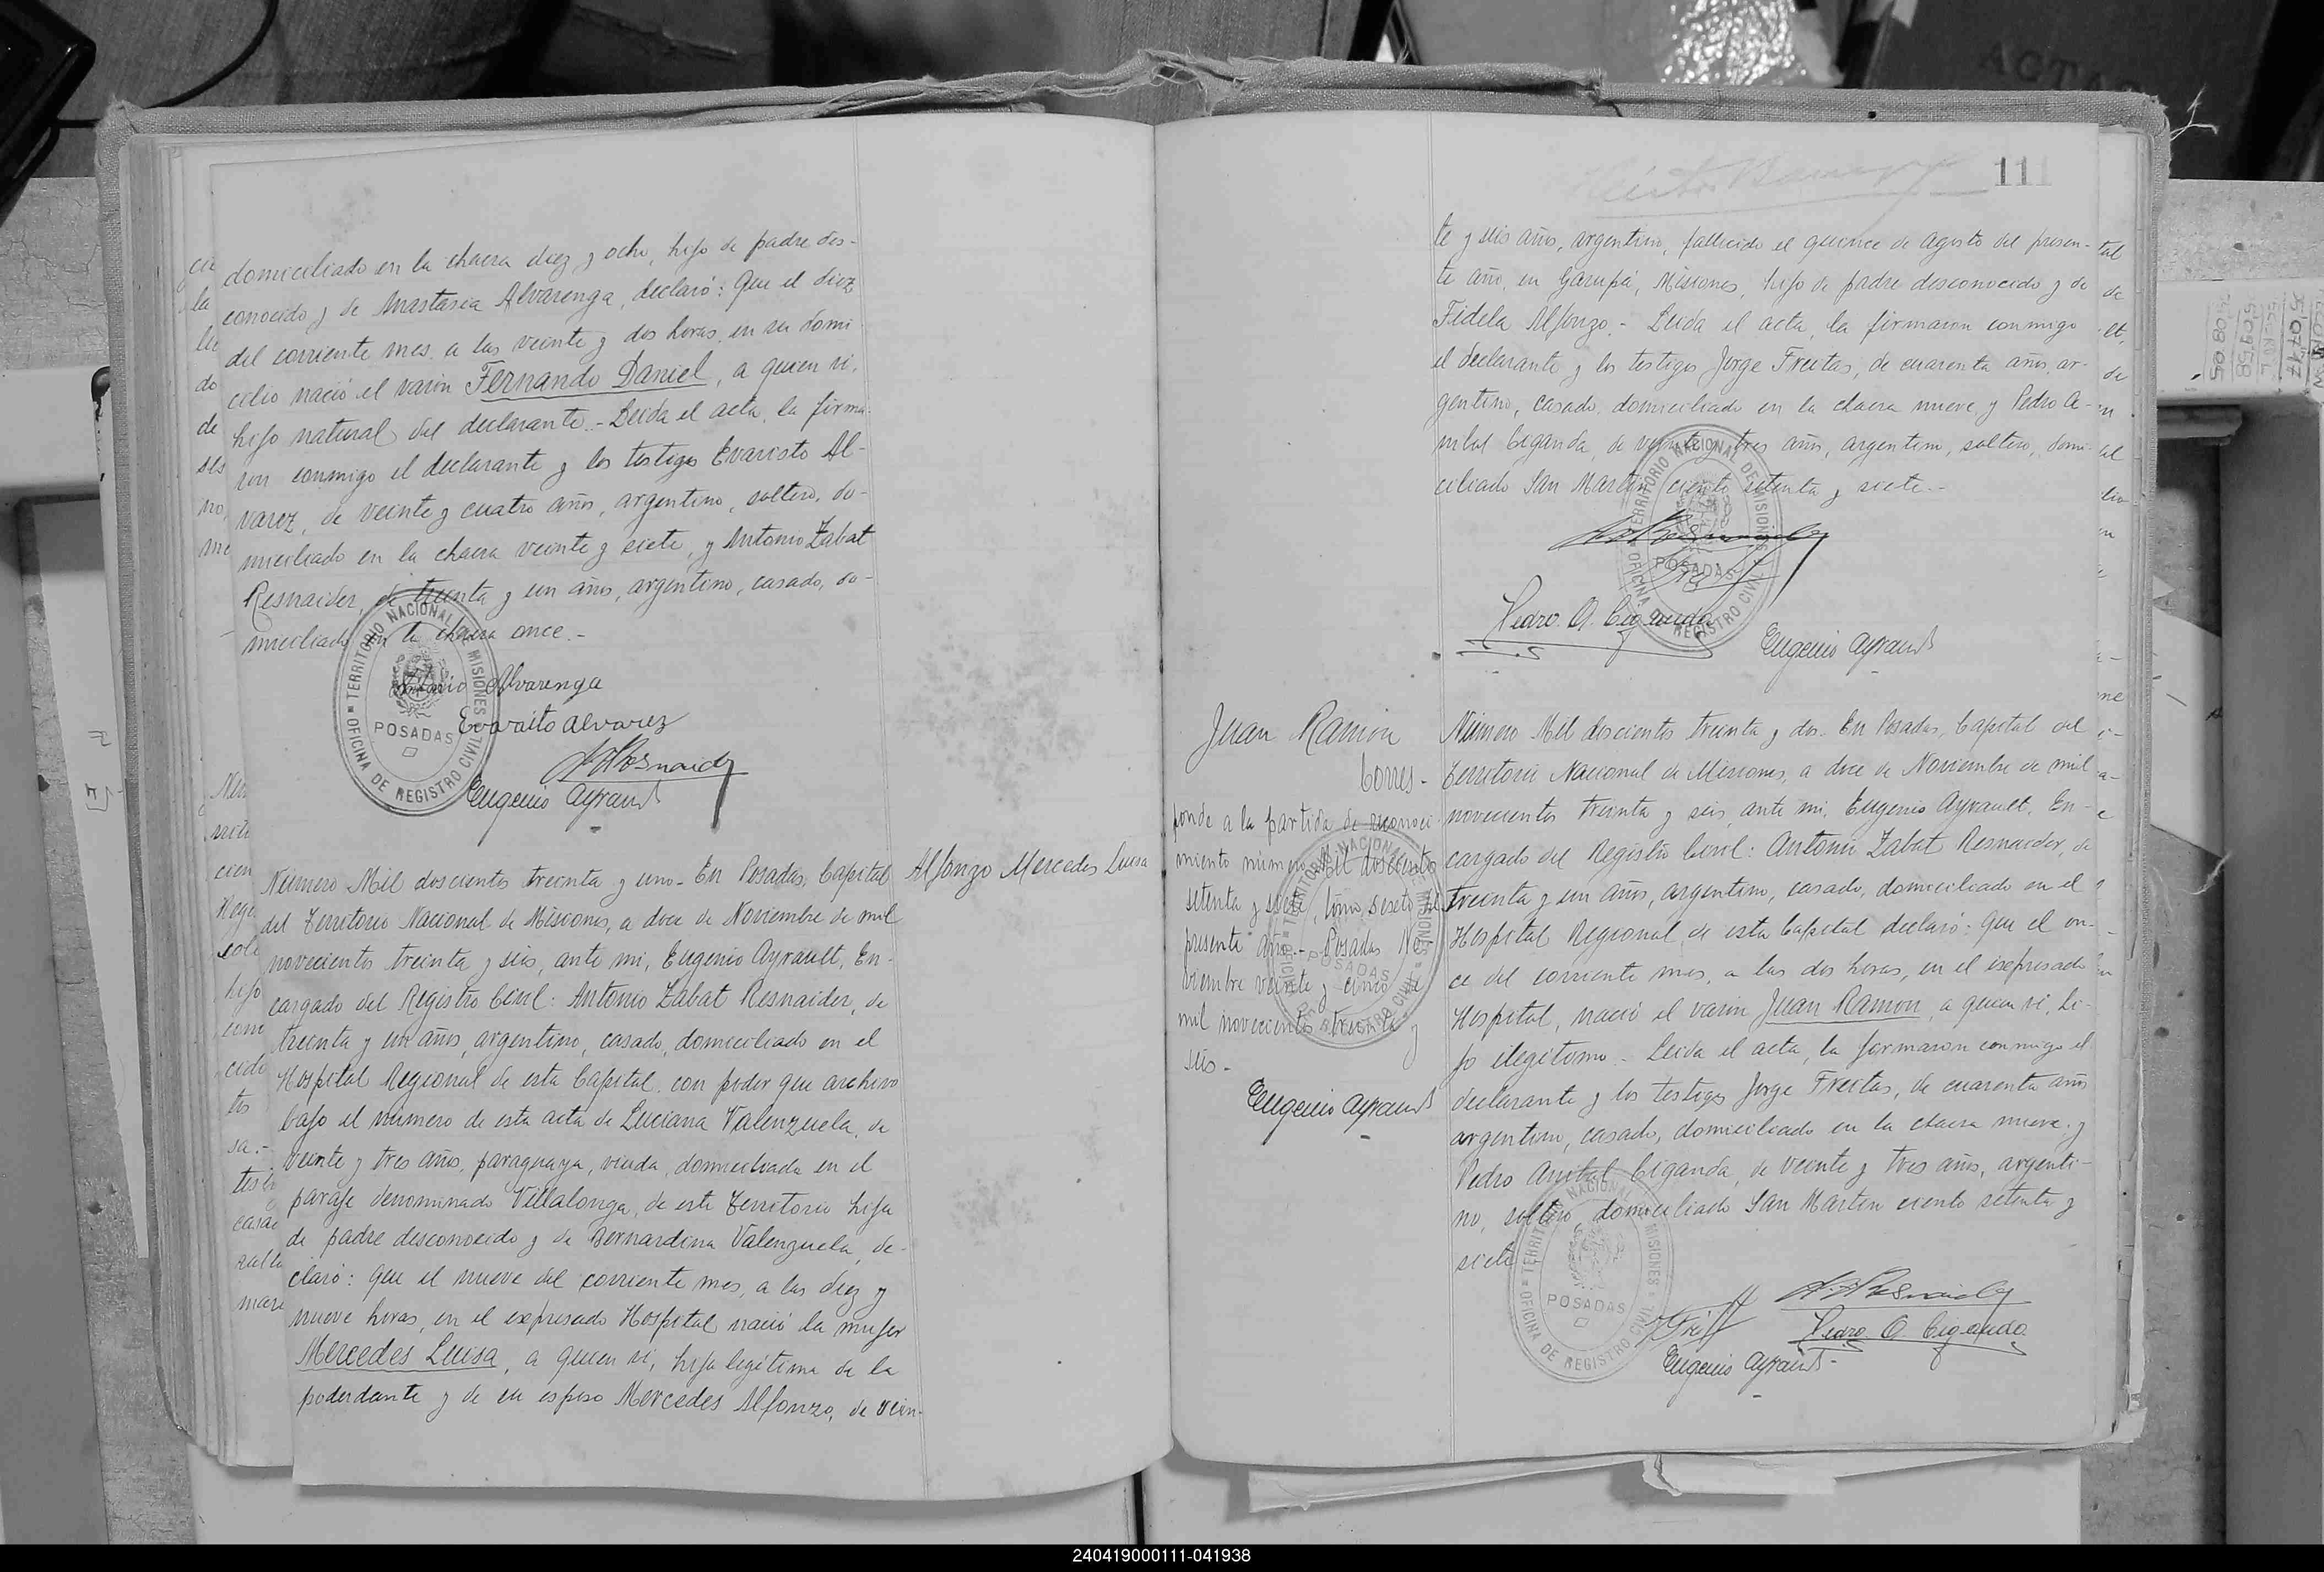 domiciliado en la chacra diez y ocho, hijo de padre des-
conocido y de Anastasia Alvarenga, declaró: Que el diez
del corriente mes, a las veinte y dos horas, en su domi
cilio nació el varón Fernando Daniel, a quien vi,
hijo natural del declarante.- Leida el acta, la firma-
ron conmigo el declarante y los testigos Evaristo Al-
varez, de veinte y cuatro años, argentino, soltero, do-
miciliado en la chacra veinte y siete, y Antonio Zabat
Resnaider, de treinta y un años, argentino, casado, do-
miciliado en la chacra once.-
Alvarenga
Evaristo Alvarez
Eugenio Ayrault
TERRITORIO NACIONAL DE MISIONES
POSADAS
OFICINA DE REGISTRO CIVIL
Alfonzo Mercedes Luisa
Número Mil doscientos treinta y uno- En Posadas, Capital
del Territorio Nacional de Misiones, a doce de Noviembre de mil
novecientos treinta y seis, ante mi, Eugenio Ayrault, En-
cargado del Registro Civil: Antonio Zabat Resnaider, de
treinta y un años, argentino, casado, domiciliado en el
Hospital Regional de esta Capital, con poder que archivo
bajo el número de esta acta de Luciana Valenzuela, de
veinte y tres años, paraguaya, viuda, domiciliada en el
paraje denominado Villalonga, de este Territorio hija
de padre desconocido y de Bernardina Valenzuela, de-
claró: que el nueve del corriente mes, a las diez y
nueve horas, en el expresado Hospital nació la mujer
Mercedes Luisa, a quien vi, hija legítima de la
poderdante y de su esposo Mercedes Alfonzo, de vein-
111
te y seis años, argentino, fallecido el quince de Agosto del presen-
te año, en Garupá, Misiones, hijo de padre desconocido y de
Fidela Alfonzo.- Leida el acta, la firmaron conmigo
el declarante y los testigos Jorge Freitas, de cuarenta años, ar-
gentino, casado, domiciliado en la chacra nueve y Pedro A-
nibal Ciganda, de veinte y tres años, argentino, soltero, domi-
ciliado San Martin ciento setenta y siete.-
Pedro. A. Ciganda
Eugenio Ayrault
TERRITORIO NACIONAL DE MISIONES
POSADAS
OFICINA DE REGISTRO CIVIL
Juan Ramón
Corres-
ponde a la partida de reconoci-
miento número Mil doscientos
setenta y siete, tomo sexto del
presente año.- Posadas No-
viembre veinte y cinco de
mil novecientos treinta y
seis-
Eugenio Ayrault
Número Mil doscientos treinta y dos- En Posadas, Capital del
Territorio Nacional de Misiones, a doce de Noviembre de mil
novecientos treinta y seis, ante mi, Eugenio Ayrault, En-
cargado del Registro Civil: Antonio Zabat Resnaider, de
treinta y un años, argentino, casado, domiciliado en el
Hospital Regional de esta Capital declaró: que el on-
ce del corriente mes, a las dos horas, en el expresado
Hospital, nació el varón Juan Ramon, a quien vi, hi-
jo ilegítimo.- Leida el acta, la firmaron conmigo el
declarante y los testigos Jorge Freitas, de cuarenta años
argentino, casado, domiciliado en la chacra nueve y
Pedro Anibal Ciganda, de veinte y tres años, argenti-
no, soltero, domiciliado San Martin ciento setenta y
siete
Pedro. A. Ciganda
Eugenio Ayrault-
TERRITORIO NACIONAL DE MISIONES
POSADAS
OFICINA DE REGISTRO CIVIL
240419000111-041938